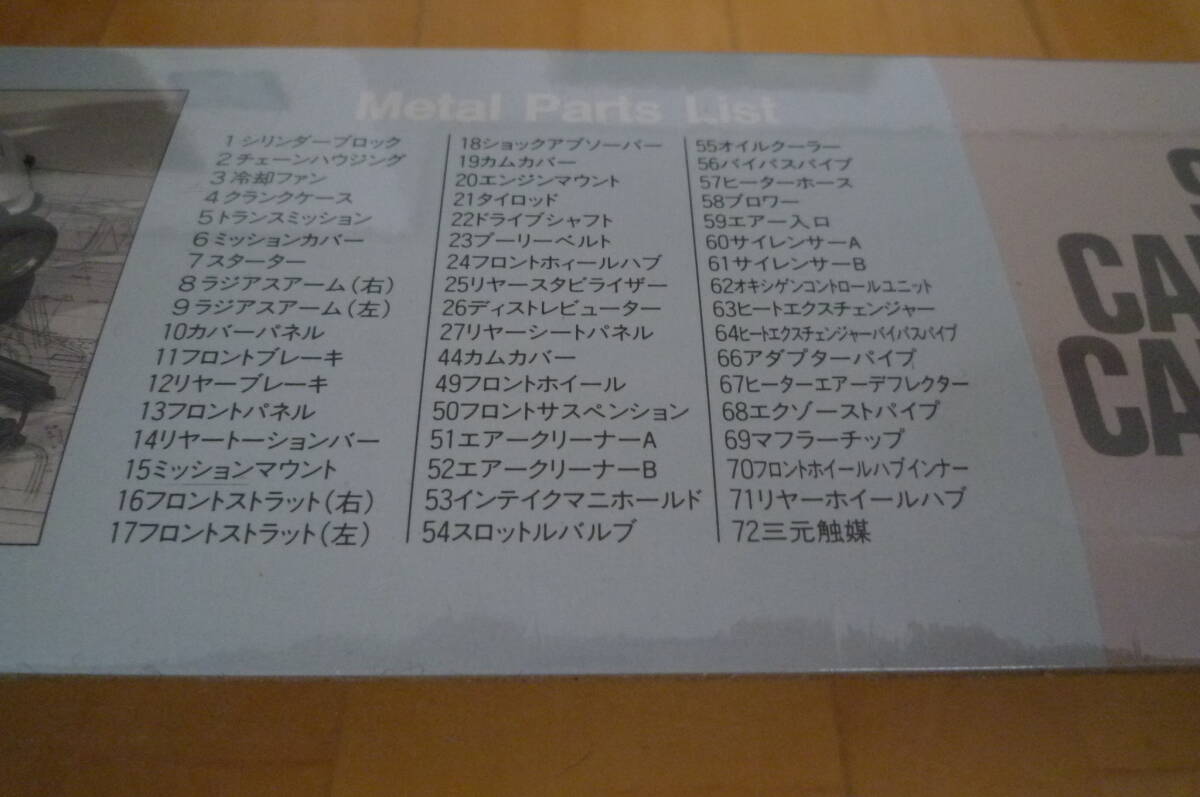 Metal Parts List
1シリンダーブロック
2チェーンハウジング
3冷却ファン
4クランクケース
5トランスミッション
6ミッションカバー
7スターター
8ラジアスアーム(右)
9ラジアスアーム(左)
10カバーパネル
11フロントブレーキ
12リヤーブレーキ
13フロントパネル
14リヤートーションバー
15ミッションマウント
16フロントストラット(右)
17フロントストラット(左)
18ショックアブソーバー
19カムカバー
20エンジンマウント
21タイロッド
22ドライブシャフト
23プーリーベルト
24フロントホィールハブ
25リヤースタビライザー
26ディストレビューター
27リヤーシートパネル
44カムカバー
49フロントホイール
50フロントサスペンション
51エアークリーナーA
52エアークリーナーB
53インテイクマニホールド
54スロットルバルブ
55オイルクーラー
56バイパスパイプ
57ヒーターホース
58ブロワー
59エアー入口
60サイレンサーA
61サイレンサーB
62オキシゲンコントロールユニット
63ヒートエクスチェンジャー
64ヒートエクスチェンジャーバイパスパイプ
66アダプターパイプ
67ヒーターエアーデフレクター
68エクゾーストパイプ
69マフラーチップ
70フロントホイールハブインナー
71リヤーホイールハブ
72三元触媒
CA
CA